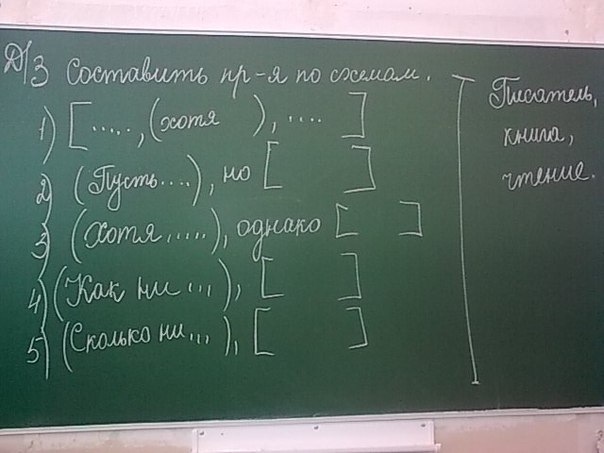 Д/З Составить пр-я по схемам.
1) [....., (хотя ), .... ]
2) (Пусть....), но [ ]
3) (Хотя.....), однако [ ]
4) (Как ни ...), [ ]
5) (Сколько ни...), [ ]
Писатель,
книга,
чтение.